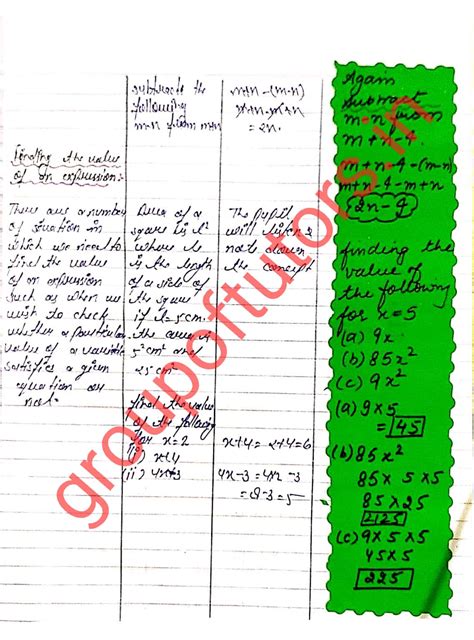 subtracts the
following
m-n from m+n
m+n-(m-n)
m+n-m+n
= 2n.
Finding the value
of an expression:-
There are a number
of situation in
which we need to
find the value
of an expression
such as when we
wish to check
whether a particular
value of a variable
satisfies a given
equation or
not.
Area of a
square is l²
where l
is the length
of a side of
the square
if l=5cm.
the area is
5²cm² and
25cm²
find the value
of the following
for x=2
(i) x+4
(ii) 4x-3
The pupil
will listen &
note down
the concept
x+4=2+4=6
4x-3=4x2-3
=8-3=5
Again
subtract
m-n from
m+n-9.
m+n-9-(m-n)
m+n-9-m+n
2n-9
finding the
value of
the following
for x=5
(a) 9x
(b) 85x²
(c) 9x²
(a) 9x5
= 45
(b) 85x²
85x 5x5
85x25
2125
(c) 9x5x5
45x5
225
groupoftutors.in